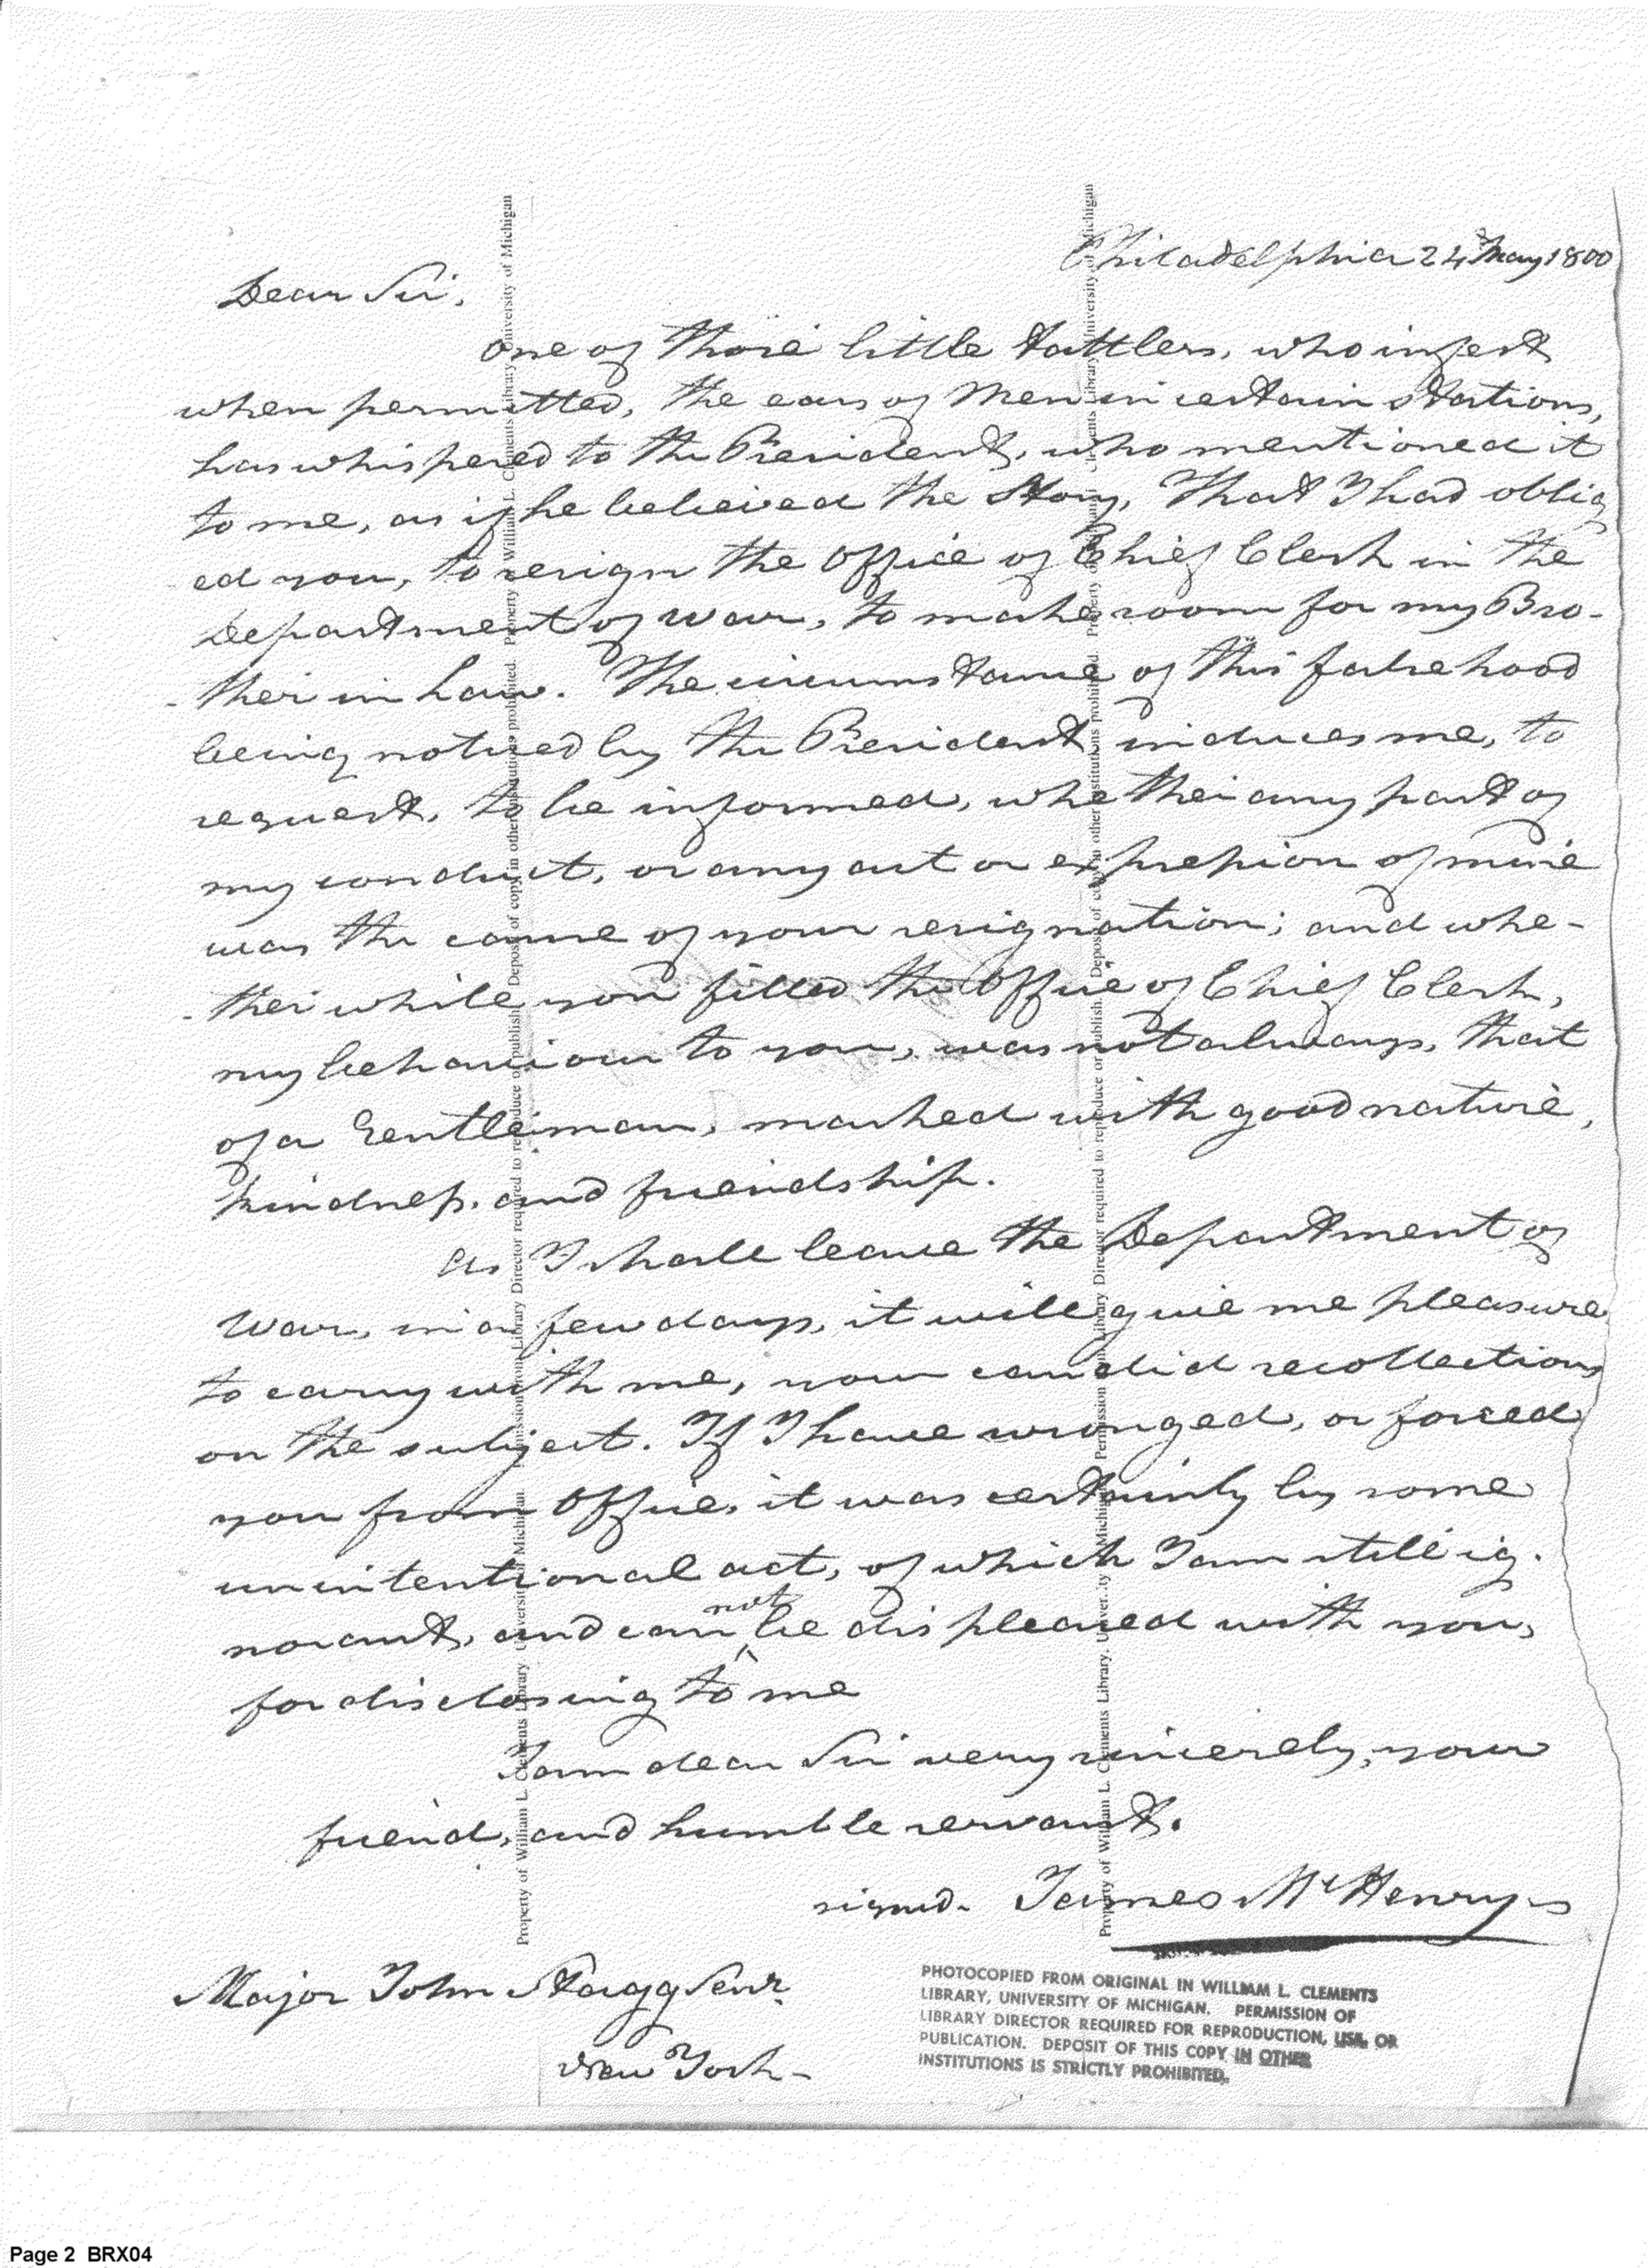 Philadelphia 24 May 1800
Dear Sir,
One of those little tattlers, who infest
when permitted, the ears of Men in certain stations,
has whispered to the President, who mentioned it
to me, as if he believed the story, That I had oblig
ed you, to resign the Office of Chief Clerk in the
Department of War, to make room for my Bro-
-ther in Law. The circumstance of this falsehood
being noticed by the President induces me, to
request, to be informed, whether any part of
my conduct, or any act or expression of mine
was the cause of your resignation; and whe-
-ther while you filled the Office of Chief Clerk,
my behaviour to you, was not always, that
of a Gentleman, marked with good nature,
kindness, and friendship.
As I shall leave the Department of
War, in a few days, it will give me pleasure
to carry with me, your candid recollections
on the subject. If I have wronged, or forced
you from Office, it was certainly by some
unintentional act, of which I am still ig-
norant, and can not be displeased with you,
for disclosing to me
I am dear Sir very sincerely, your
friend, and humble servant.
signed. James McHenry
Major John Stagg Senr.
New York-
PHOTOCOPIED FROM ORIGINAL IN WILLIAM L. CLEMENTS
LIBRARY, UNIVERSITY OF MICHIGAN. PERMISSION OF
LIBRARY DIRECTOR REQUIRED FOR REPRODUCTION, USE, OR
PUBLICATION. DEPOSIT OF THIS COPY IN OTHER
INSTITUTIONS IS STRICTLY PROHIBITED.
Property of William L. Clements Library, University of Michigan. Permission from Library Director required to reproduce or publish. Deposit of copy in other institutions prohibited. Property of William L. Clements Library, University of Michigan
Property of William L. Clements Library, University of Michigan. Permission from Library Director required to reproduce or publish. Deposit of copy in other institutions prohibited. Property of William L. Clements Library, University of Michigan
Page 2 BRX04